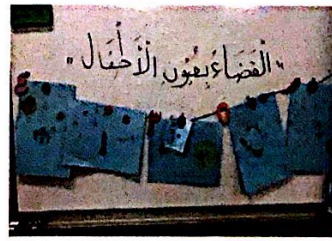 "الْفَضَاءُ بِعُيُونِ الْأَطْفَالِ"